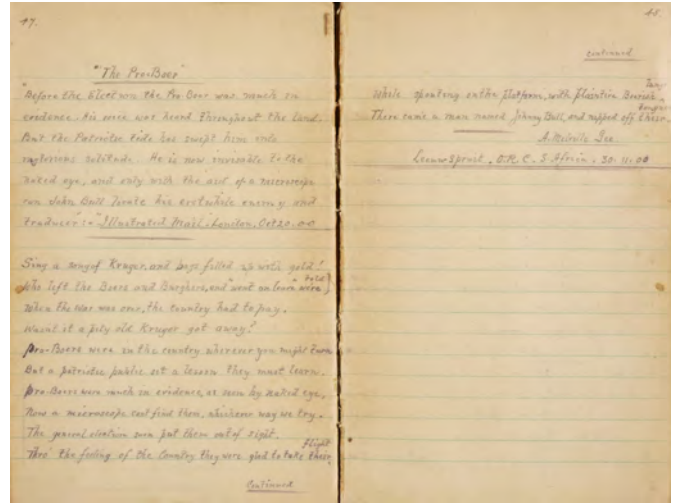 47.
"The Pro-Boer"
"Before the Election the Pro Boer was much in
evidence, his voice was heard throughout the land.
But the Patriotic tide has swept him into
inglorious solitude. He is now invisible to the
naked eye, and only with the aid of a microscope
can John Bull locate his erstwhile enemy and
traducer". "Illustrated Mail, London, Oct 20.00
Sing a song of Kruger, and bags filled up with gold!
Who left the Boers and Burghers, and went on leave were told
When the War was one, the country had to pay.
Wasnt it a pity old Kruger got away?
Pro-Boers were in the country wherever you might turn
But a patriotic public set a lesson they must learn.
Pro-Boers were much in evidence, as seen by naked eye,
Now a microscope cant find them, whichever way we try.
The general election soon put them out of sight.
Thro' the feeling of the Country they were glad to take their flight
Continued
48.
continued
While spouting on the platform, with plaintive Boerish tongue
There came a man named Johnny Bull, and nipped off their
A. Melville
Leeuwspruit, O.R.C. S. Africa. 30.11.00